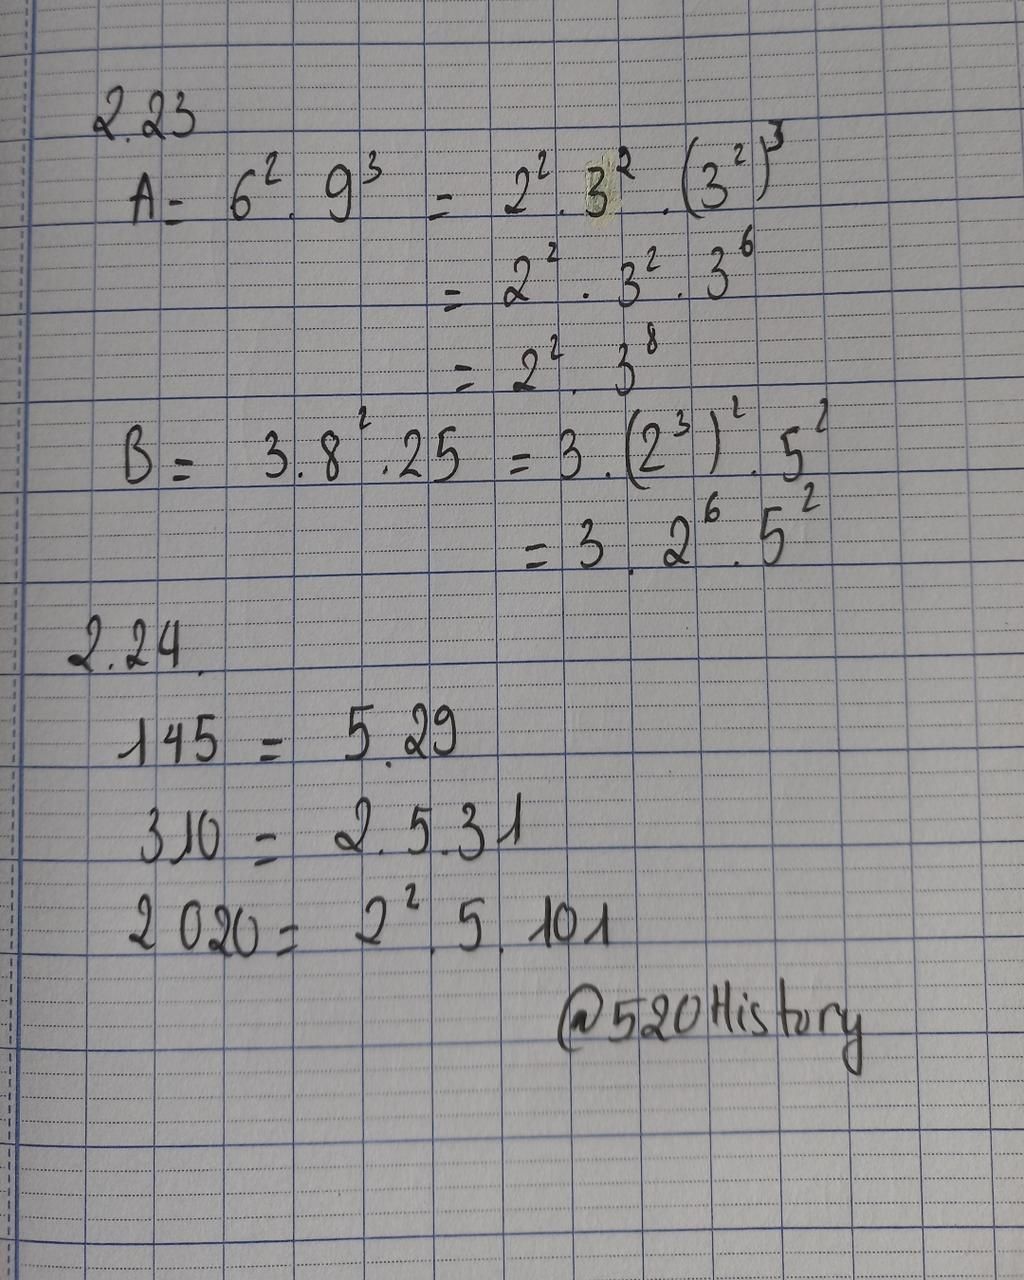 2.23
A = 6² . 9³ = 2² . 3² . (3²)³
= 2² . 3² . 3⁶
= 2² . 3⁸
B = 3 . 8² . 25 = 3 . (2³)² . 5²
= 3 . 2⁶ . 5²
2.24.
145 = 5 . 29
310 = 2 . 5 . 31
2 020 = 2² . 5 . 101
@520History